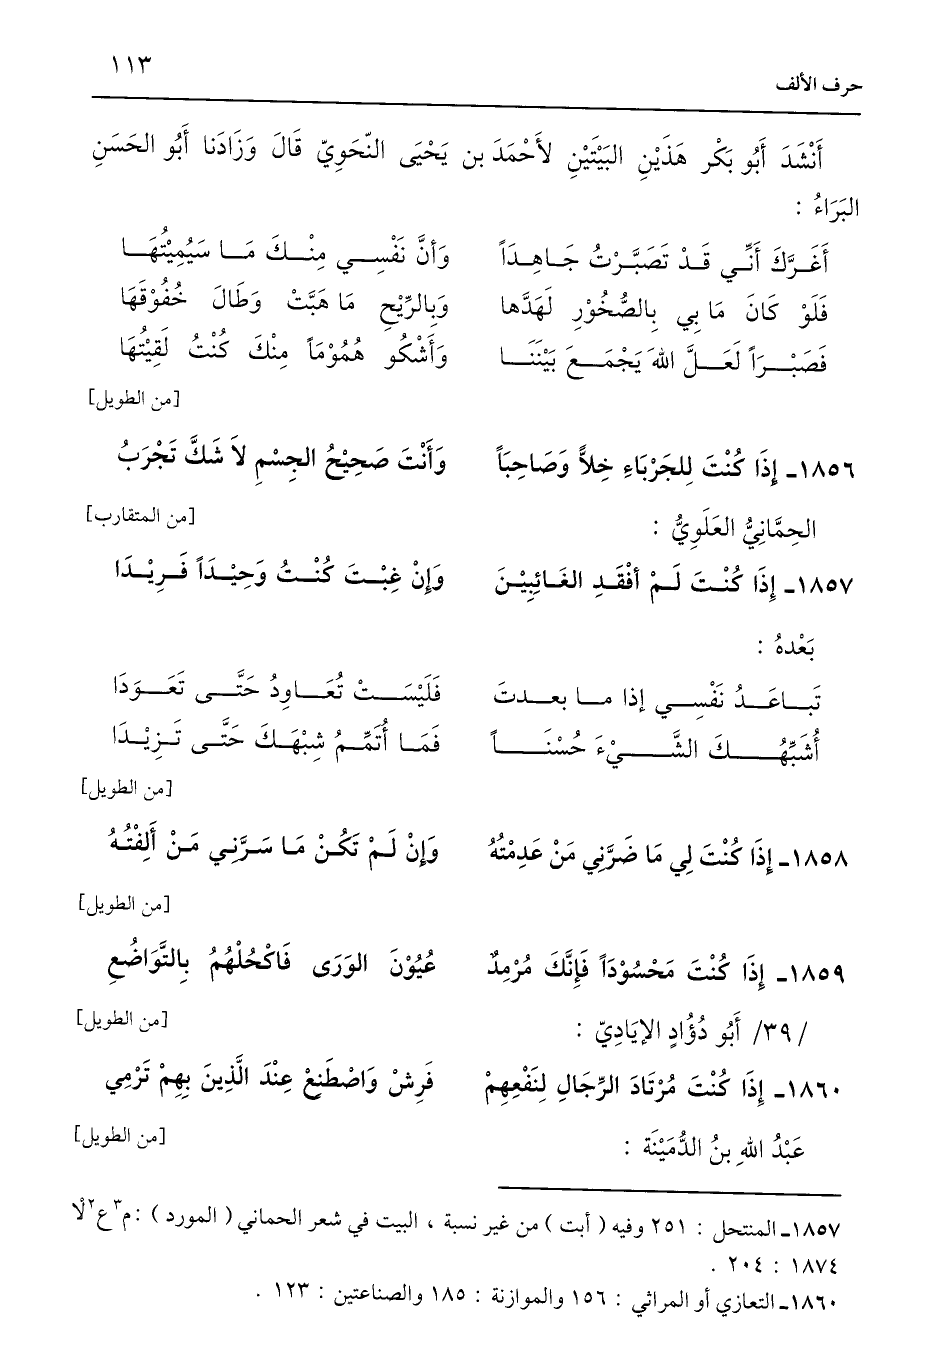 ١١٣
حرف الألف
أَنْشَدَ أَبُو بَكْر هَذَيْنِ البَيْتَيْنِ لأَحْمَدَ بن يَحْيَى النّحَوِيّ قَالَ وَزَادَنا أَبُو الحَسَنِ
البَرَاءُ :
أَغَرَّكَ أَنِّي قَدْ تَصَبَّرْتُ جَاهِدَاً وَأنَّ نَفْسِي مِنْكَ مَا سَيُمِيْتُهَا
فَلَوْ كَانَ مَا بي بِالصُّخُوْرِ لَهَدَّها وَبِالرِّيْحِ مَا هَبَّتْ وَطَالَ خُفُوْقَهَا
فَصَبْرَاً لَعَلَّ اللهَ يَجْمَعَ بَيْنَنَا وَأَشْكُو هُمُوْمَاً مِنْكَ كُنْتُ لَقِيْتُهَا
[من الطويل]
١٨٥٦ـ إِذَا كُنْتَ لِلجَرْبَاءِ خِلاًّ وَصَاحِبَاً وَأَنْتَ صَحِيْحُ الجِسْمِ لاَ شَكَّ تَجْرَبُ
[من المتقارب]
الحِمَّانِيُّ العَلَوِيُّ :
١٨٥٧ـ إِذَا كُنْتَ لَمْ أفْقَدِ الغَائِبِيْنَ وَإِنْ غِبْتَ كُنْتُ وَحِيْدَاً فَرِيْدَا
بَعْدهُ :
تَبَاعَدُ نَفْسِي إذا ما بعدتَ فَلَيْسَتْ تُعَاودُ حَتَّى تَعَوَدَا
أُشَبِّهُكَ الشَّيْءَ حُسْنَاً فَمَا أُتَمِّمُ شِبْهَكَ حَتَّى تَزِيْدَا
[من الطويل]
١٨٥٨ـ إِذَا كُنْتَ لِي مَا ضَرَّنِي مَنْ عَدِمْتهُ وَإِنْ لَمْ تَكُنْ مَا سَرَّنِي مَنْ أَلِفْتُهُ
[من الطويل]
١٨٥٩ـ إِذَا كُنْتَ مَحْسُوْدَاً فَإِنَّكَ مُرْمِدٌ عُيُوْنَ الوَرَى فَاكْحُلْهُمُ بِالتَّوَاضُعِ
[من الطويل]
/ ٣٩/ أَبُو دُؤَادٍ الإيَادِيّ :
١٨٦٠ـ إِذَا كُنْتَ مُرْتَادَ الرِّجَالِ لِنَفْعِهِمْ فَرِشْ وَاصْطَنِعْ عِنْدَ الَّذِينَ بِهِمْ تَرْمِي
[من الطويل]
عَبْدُ اللهِ بنُ الدُّمَيْنَة :
١٨٥٧ـ المنتحل : ٢٥١ وفيه ( أبت ) من غير نسبة ، البيت في شعر الحماني ( المورد ) : م٣ ع٢ لا
١٨٧٤ : ٢٠٤ .
١٨٦٠ـ التعازي أو المراثي : ١٥٦ والموازنة : ١٨٥ والصناعتين : ١٢٣ .